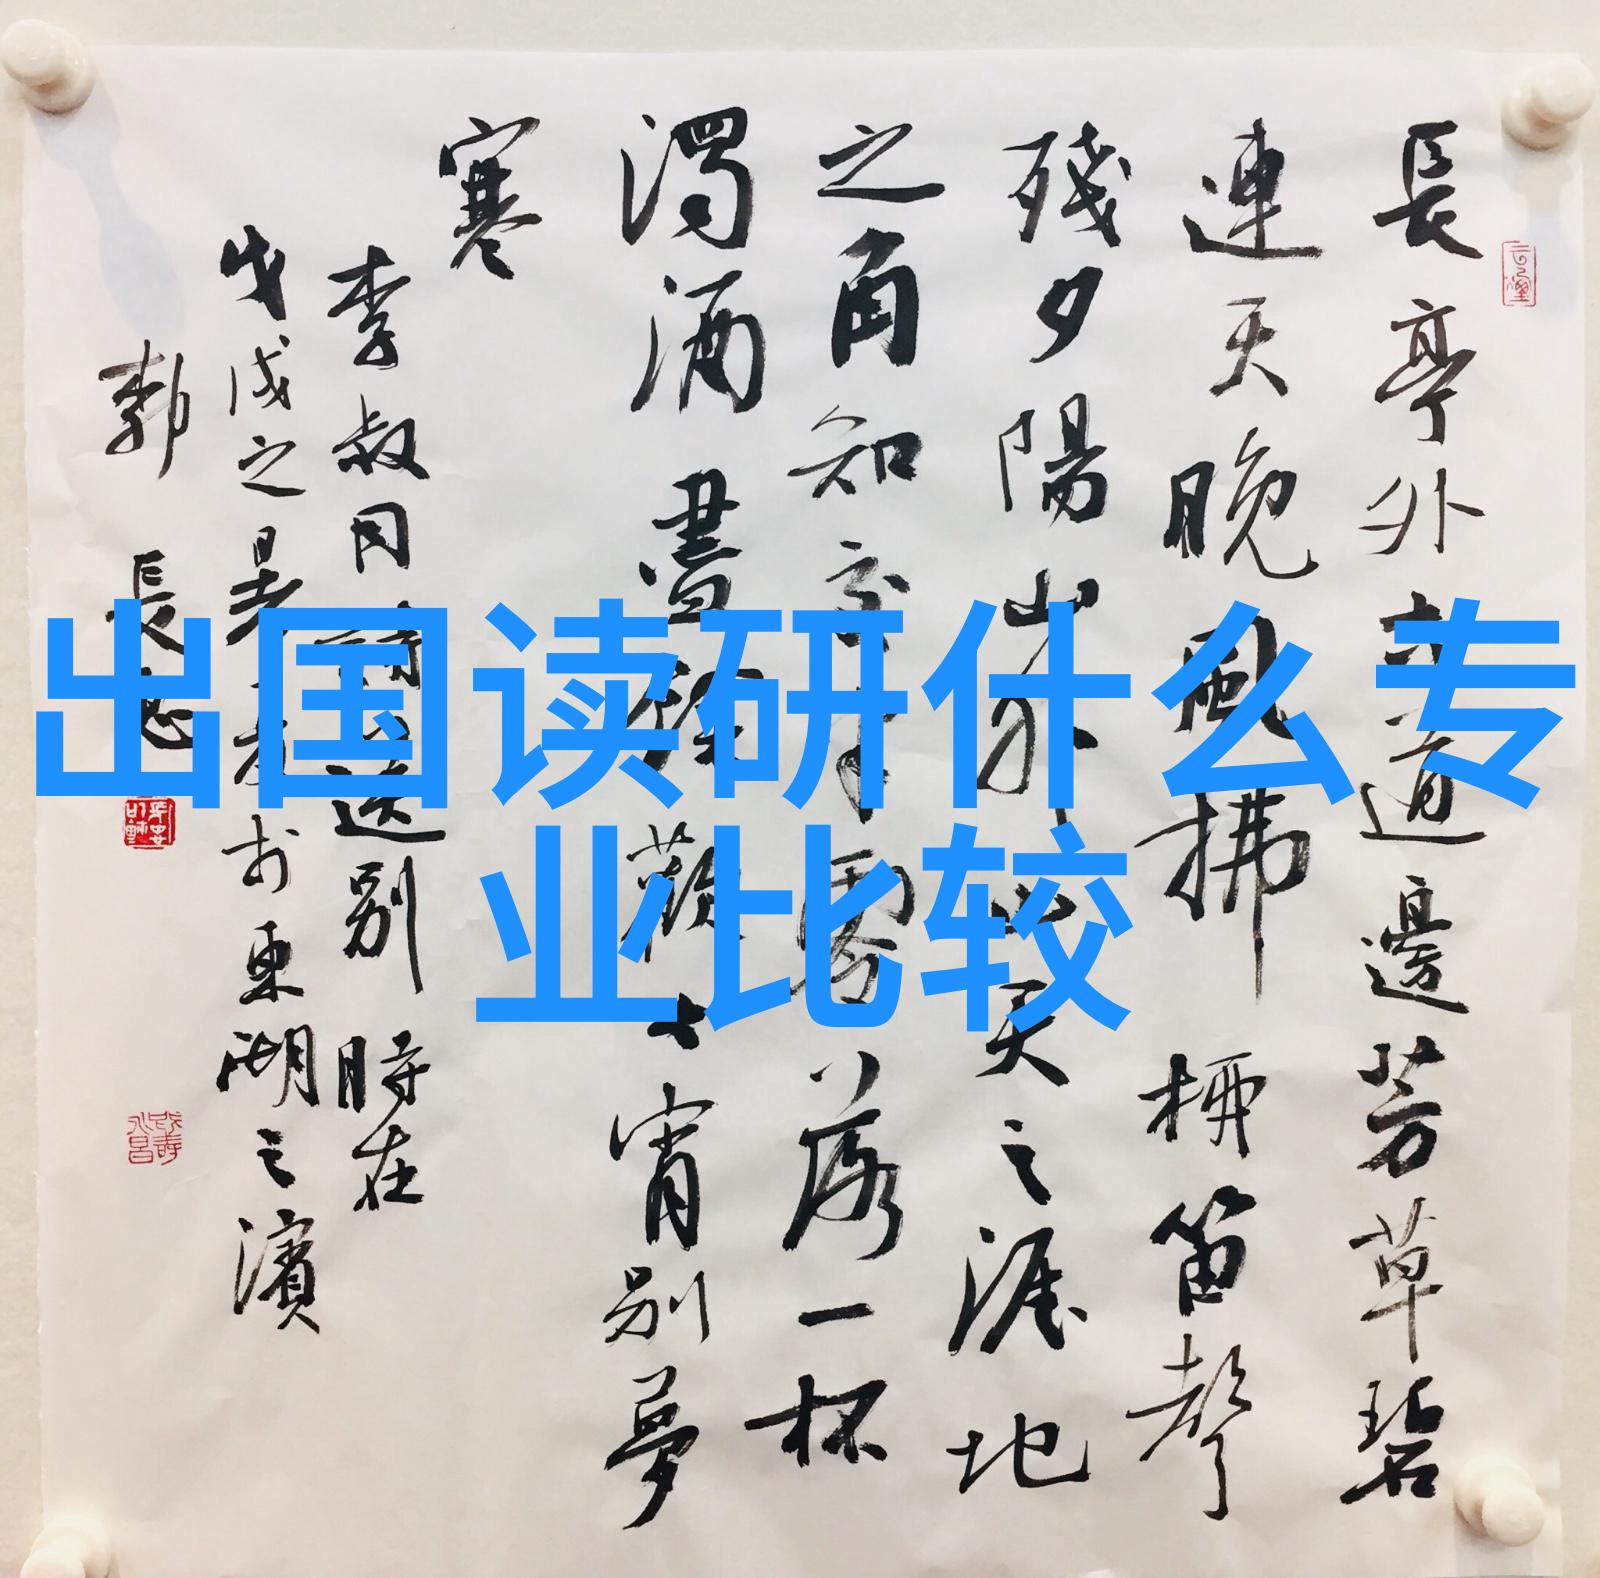 長亭外古道邊芳草碧
連天晚風拂柳笛聲
殘夕陽山外山天之涯地
之角知交半零落一杯
濁酒盡餘歡今宵別夢
寒
李叔同詩送別 時在
戊戌之暑夏於東湖之濱
郭 長忠
出国读研什么专
业比较